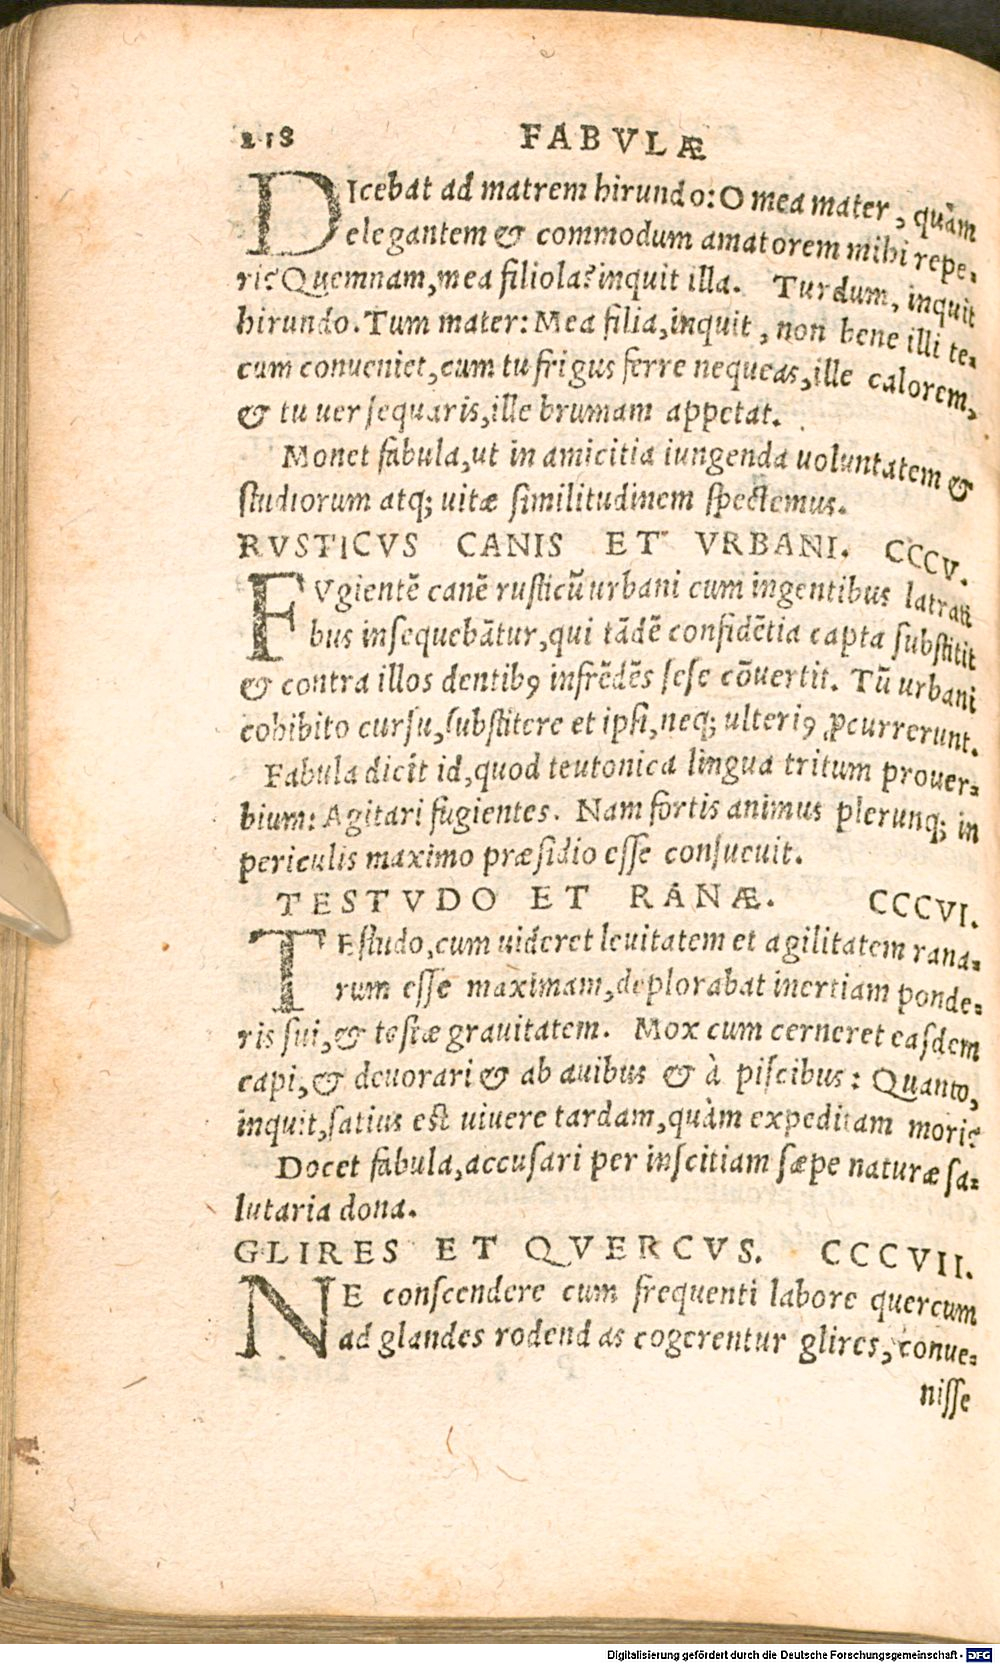 218 FABVLÆ
DIcebat ad matrem hirundo: O mea mater, quàm
elegantem & commodum amatorem mihi repe-
ri? Quemnam, mea filiola? inquit illa. Turdum, inquit
hirundo. Tum mater: Mea filia, inquit, non bene illi te-
cum conueniet, cum tu frigus ferre nequeas, ille calorem,
& tu uer sequaris, ille brumam appetat.
Monet fabula, ut in amicitia iungenda uoluntatem &
studiorum atq; uitæ similitudinem spectemus.
RVSTICVS CANIS ET VRBANI. CCCV.
FVgientē canē rusticū urbani cum ingentibus latrati
bus insequebātur, qui tādē confidētia capta substitit
& contra illos dentibꝰ infrēdēs sese cōuertit. Tū urbani
cohibito cursu, substitere et ipsi, neq; ulteriꝰ ꝓcurrerunt.
Fabula dicit id, quod teutonica lingua tritum prouer-
bium: Agitari fugientes. Nam fortis animus plerunq; in
periculis maximo præsidio esse consueuit.
TESTVDO ET RANÆ. CCCVI.
TEstudo, cum uideret leuitatem et agilitatem rana-
rum esse maximam, deplorabat inertiam ponde-
ris sui, & testæ grauitatem. Mox cum cerneret easdem
capi, & deuorari & ab auibus & à piscibus: Quanto,
inquit, satius est uiuere tardam, quàm expeditam mori?
Docet fabula, accusari per inscitiam sæpe naturæ sa-
lutaria dona.
GLIRES ET QVERCVS. CCCVII.
NE conscendere cum frequenti labore quercum
ad glandes rodendas cogerentur glires, conue-
nisse
Digitalisierung gefördert durch die Deutsche Forschungsgemeinschaft - DFG